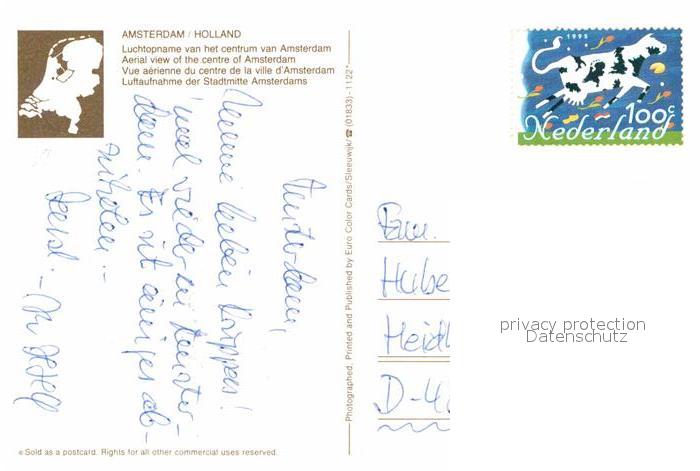 AMSTERDAM / HOLLAND
Luchtopname van het centrum van Amsterdam
Aerial view of the centre of Amsterdam
Vue aérienne du centre de la ville d'Amsterdam
Luftaufnahme der Stadtmitte Amsterdams
1995
100c
Nederland
Amsterdam,
Meine lieben
'mal wieder in Amster-
dam. Es ist einiges ab-
zuholen
Photographed, Printed and Published by Euro Color Cards/Sleeuwijk/☎ (01833)-1122*
Fam.
Hube
Heid
D-4
privacy protection
Datenschutz
© Sold as a postcard. Rights for all other commercial uses reserved.